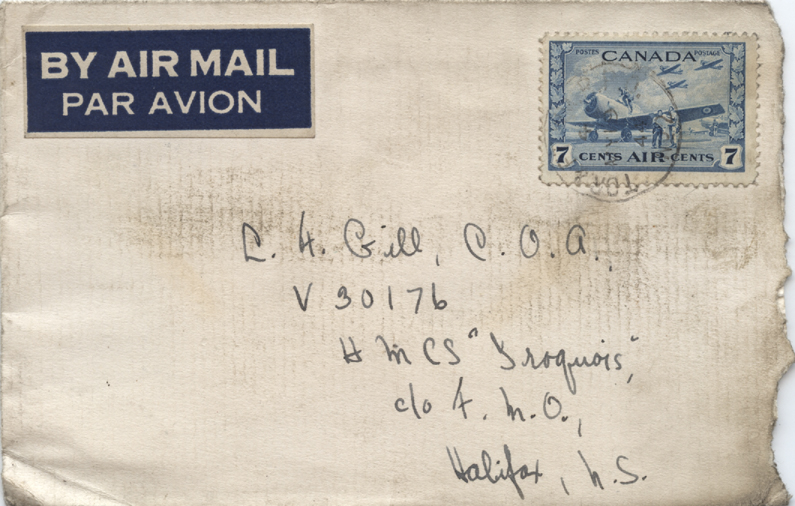 BY AIR MAIL
PAR AVION
POSTES CANADA POSTAGE
7 CENTS AIR CENTS 7
L. H. Gill, C. O. A.,
V 30176
HMCS "Iroquois",
c/o F. M. O.,
Halifax, N.S.